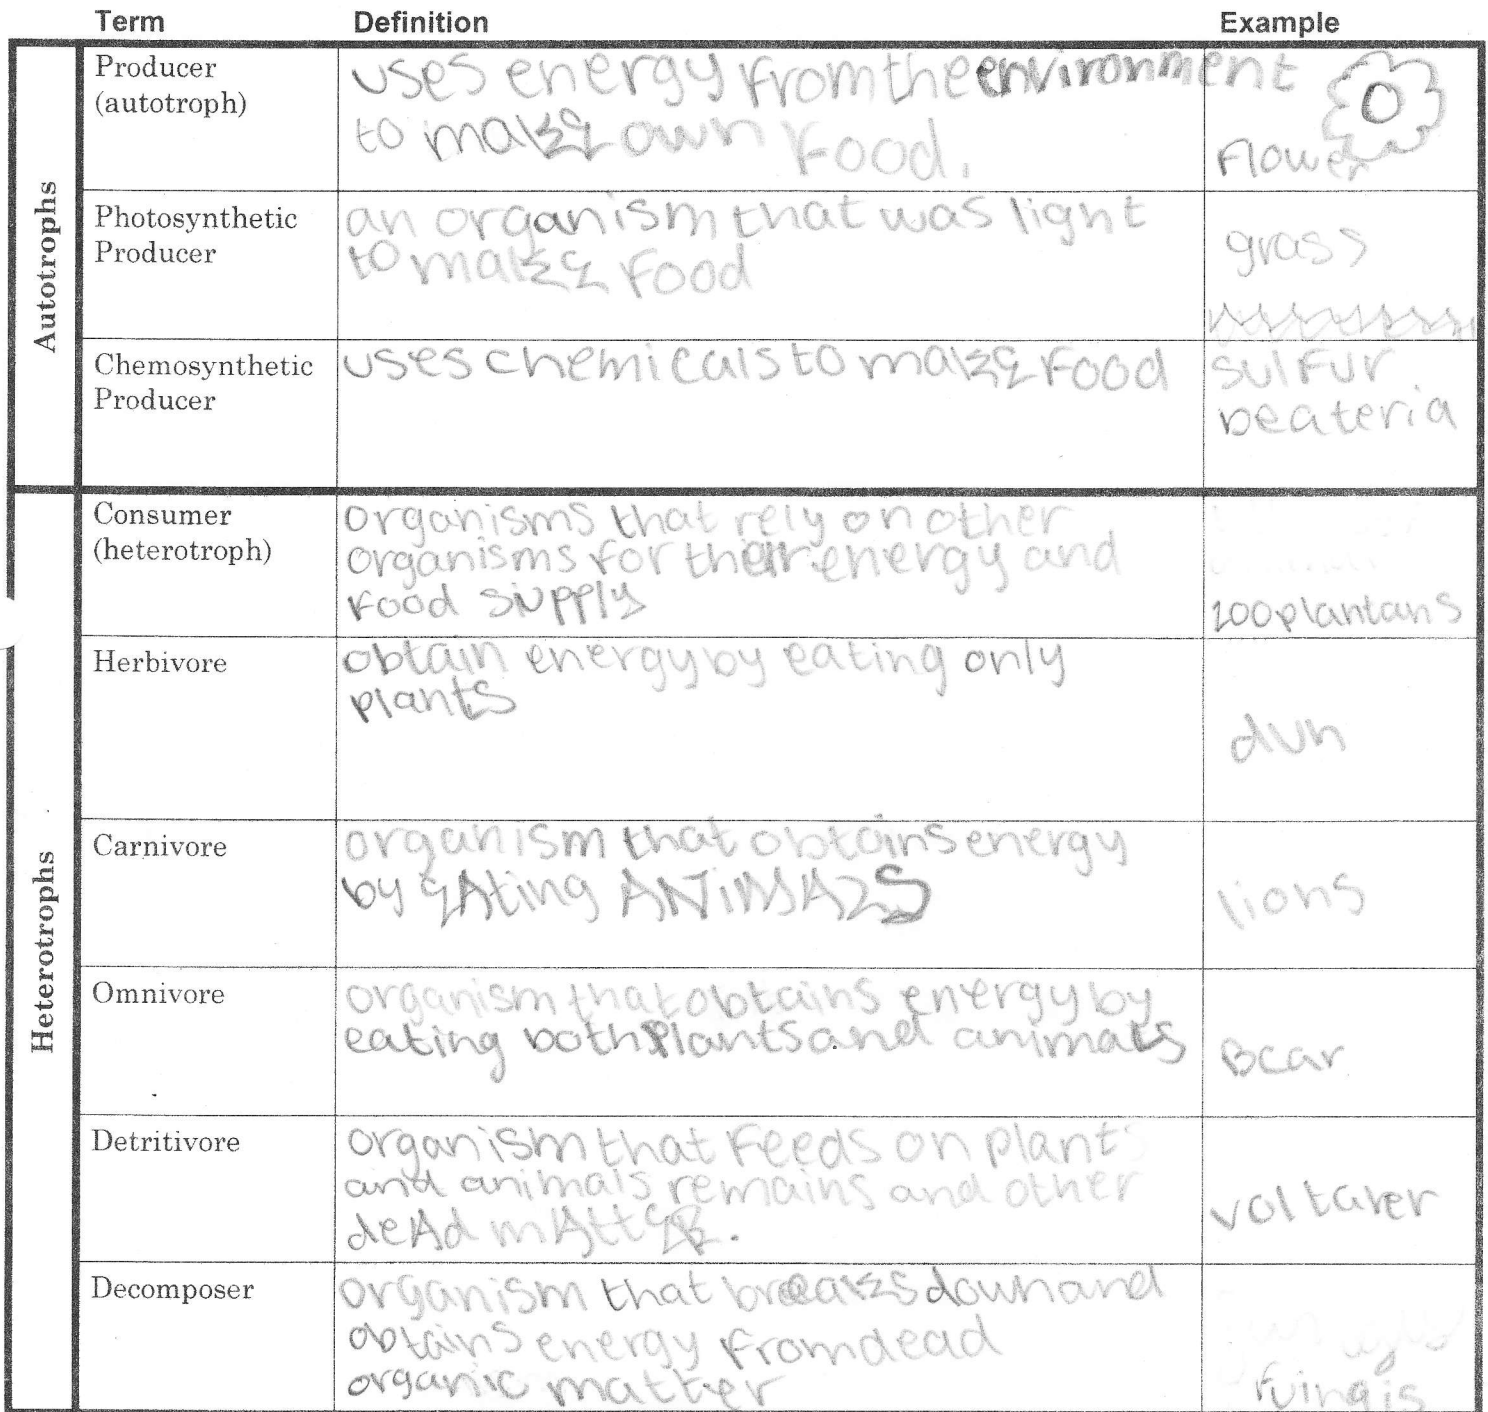 Term Definition Example
Autotrophs
Producer
(autotroph)
uses energy from the environment
to make own food.
Flower
Photosynthetic
Producer
an organism that was light
to make food
grass
Chemosynthetic
Producer
uses chemicals to make food
sulfur
beateria
Heterotrophs
Consumer
(heterotroph)
organisms that rely on other
organisms for their energy and
food supply
zooplantans
Herbivore
obtain energy by eating only
plants
Carnivore
organism that obtains energy
by eAting ANiMALS
lions
Omnivore
organism that obtains energy by
eating both plants and animals
Bear
Detritivore
organism that feeds on plant
and animals remains and other
deAd mAtteR.
voltarer
Decomposer
organism that breaks down and
obtains energy from dead
organic matter
fuingis